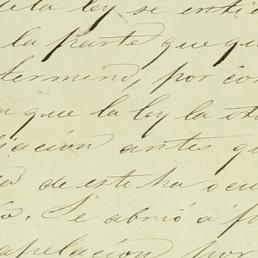 de la ley se enti
la parte que qu
termino, por con
n que la ley la oto
iacion antes qu
de esto ha ocu
o. Se abrió á p
apelación por